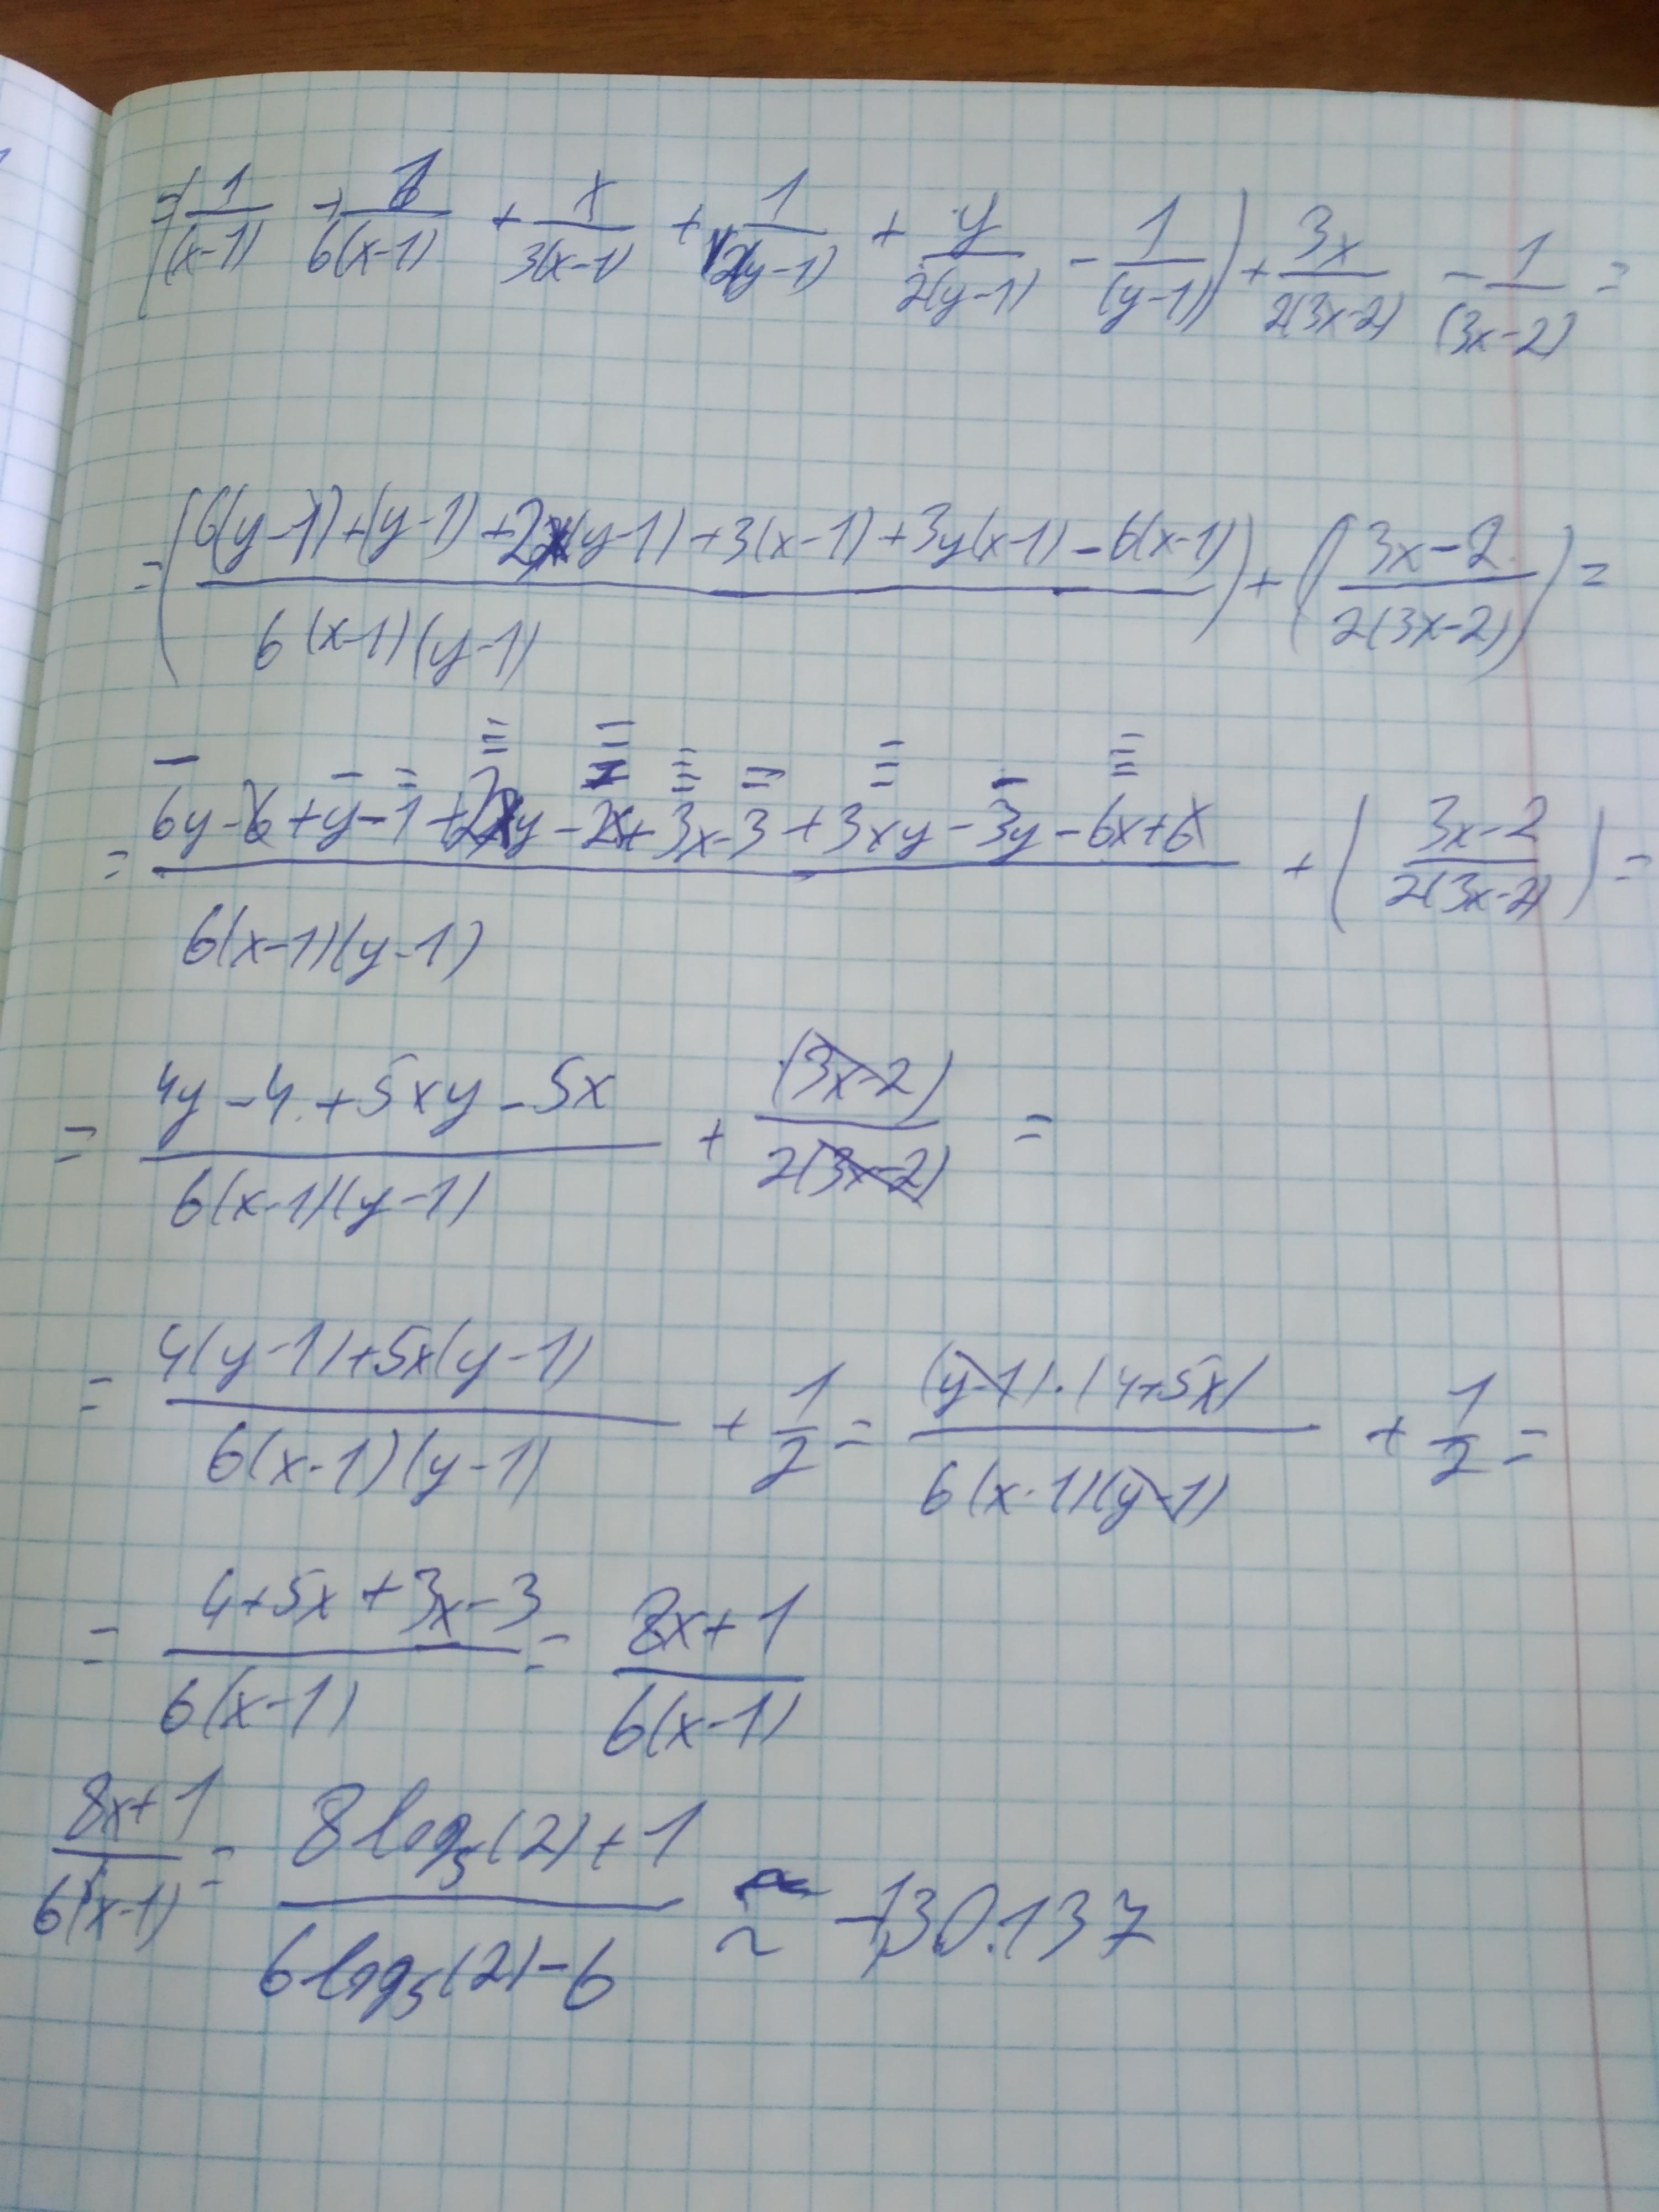 =(1/(x-1) + 1/6(x-1) + x/3(x-1) + 1/2(y-1) + y/2(y-1) - 1/(y-1)) + 3x/2(3x-2) - 1/(3x-2) =
=(6(y-1)+(y-1)+2x(y-1)+3(x-1)+3y(x-1)-6(x-1) / 6(x-1)(y-1)) + (3x-2 / 2(3x-2)) =
= 6y-6+y-1+2xy-2x+3x-3+3xy-3y-6x+6 / 6(x-1)(y-1) + (3x-2 / 2(3x-2)) =
= 4y-4+5xy-5x / 6(x-1)(y-1) + (3x-2) / 2(3x-2) =
= 4(y-1)+5x(y-1) / 6(x-1)(y-1) + 1/2 = (y-1)·(4+5x) / 6(x-1)(y-1) + 1/2 =
= 4+5x+3x-3 / 6(x-1) = 8x+1 / 6(x-1)
8x+1 / 6(x-1) = 8log₅(2)+1 / 6log₅(2)-6 ≈